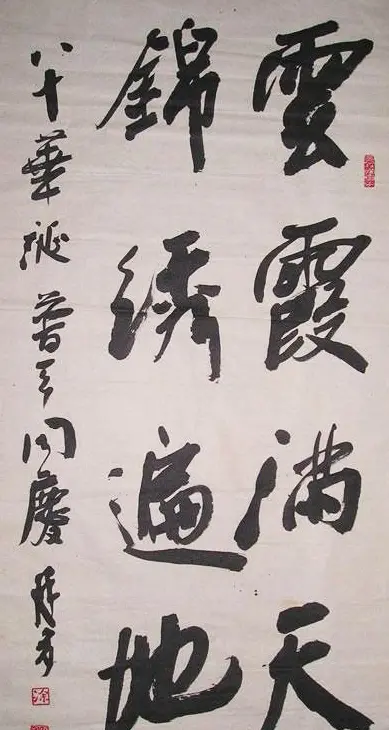 雲霞满天
錦绣遍地
八十華诞普天同慶